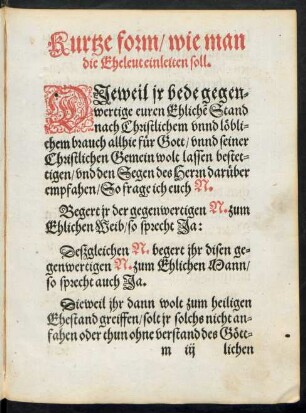 Kurtze form/ wie man
die Eheleut einleiten soll.
DIeweil jr bede gegen-
wertige euren Ehlichē Stand
nach Christlichem vnnd löbli-
chem brauch allhie für Gott/ vnnd seiner
Christlichen Gemein wolt lassen beste-
tigen/ vnd den Segen des Herrn darüber
empfahen/ So frage ich euch N.
Begert jr der gegenwertigen N. zum
Ehlichen Weib/ so sprecht Ja:
Deßgleichen N. begert ihr disen ge-
genwertigen N. zum Ehlichen Mann/
so sprecht auch Ja.
Dieweil ihr dann wolt zum heiligen
Ehestand greiffen/ solt jr solchs nicht an-
fahen oder thun ohne verstand des Gött-
m iij lichen